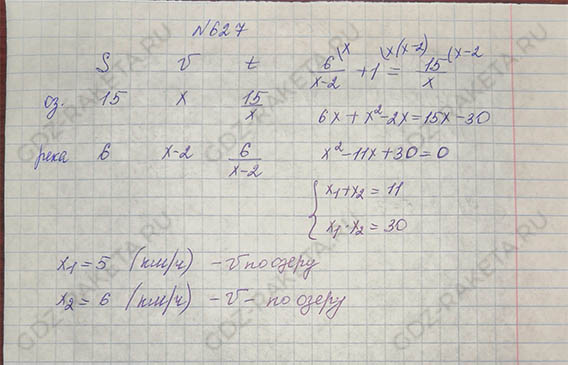 N627
S v t
оз. 15 x 15/x
река 6 x-2 6/(x-2)
6/(x-2) \x + 1 \x(x-2) = 15/x \x-2
6x + x² - 2x = 15x - 30
x² - 11x + 30 = 0
{ x₁ + x₂ = 11
x₁ · x₂ = 30
x₁ = 5 (км/ч) - v по озеру
x₂ = 6 (км/ч) - v - по озеру
GDZ-RAKETA.RU